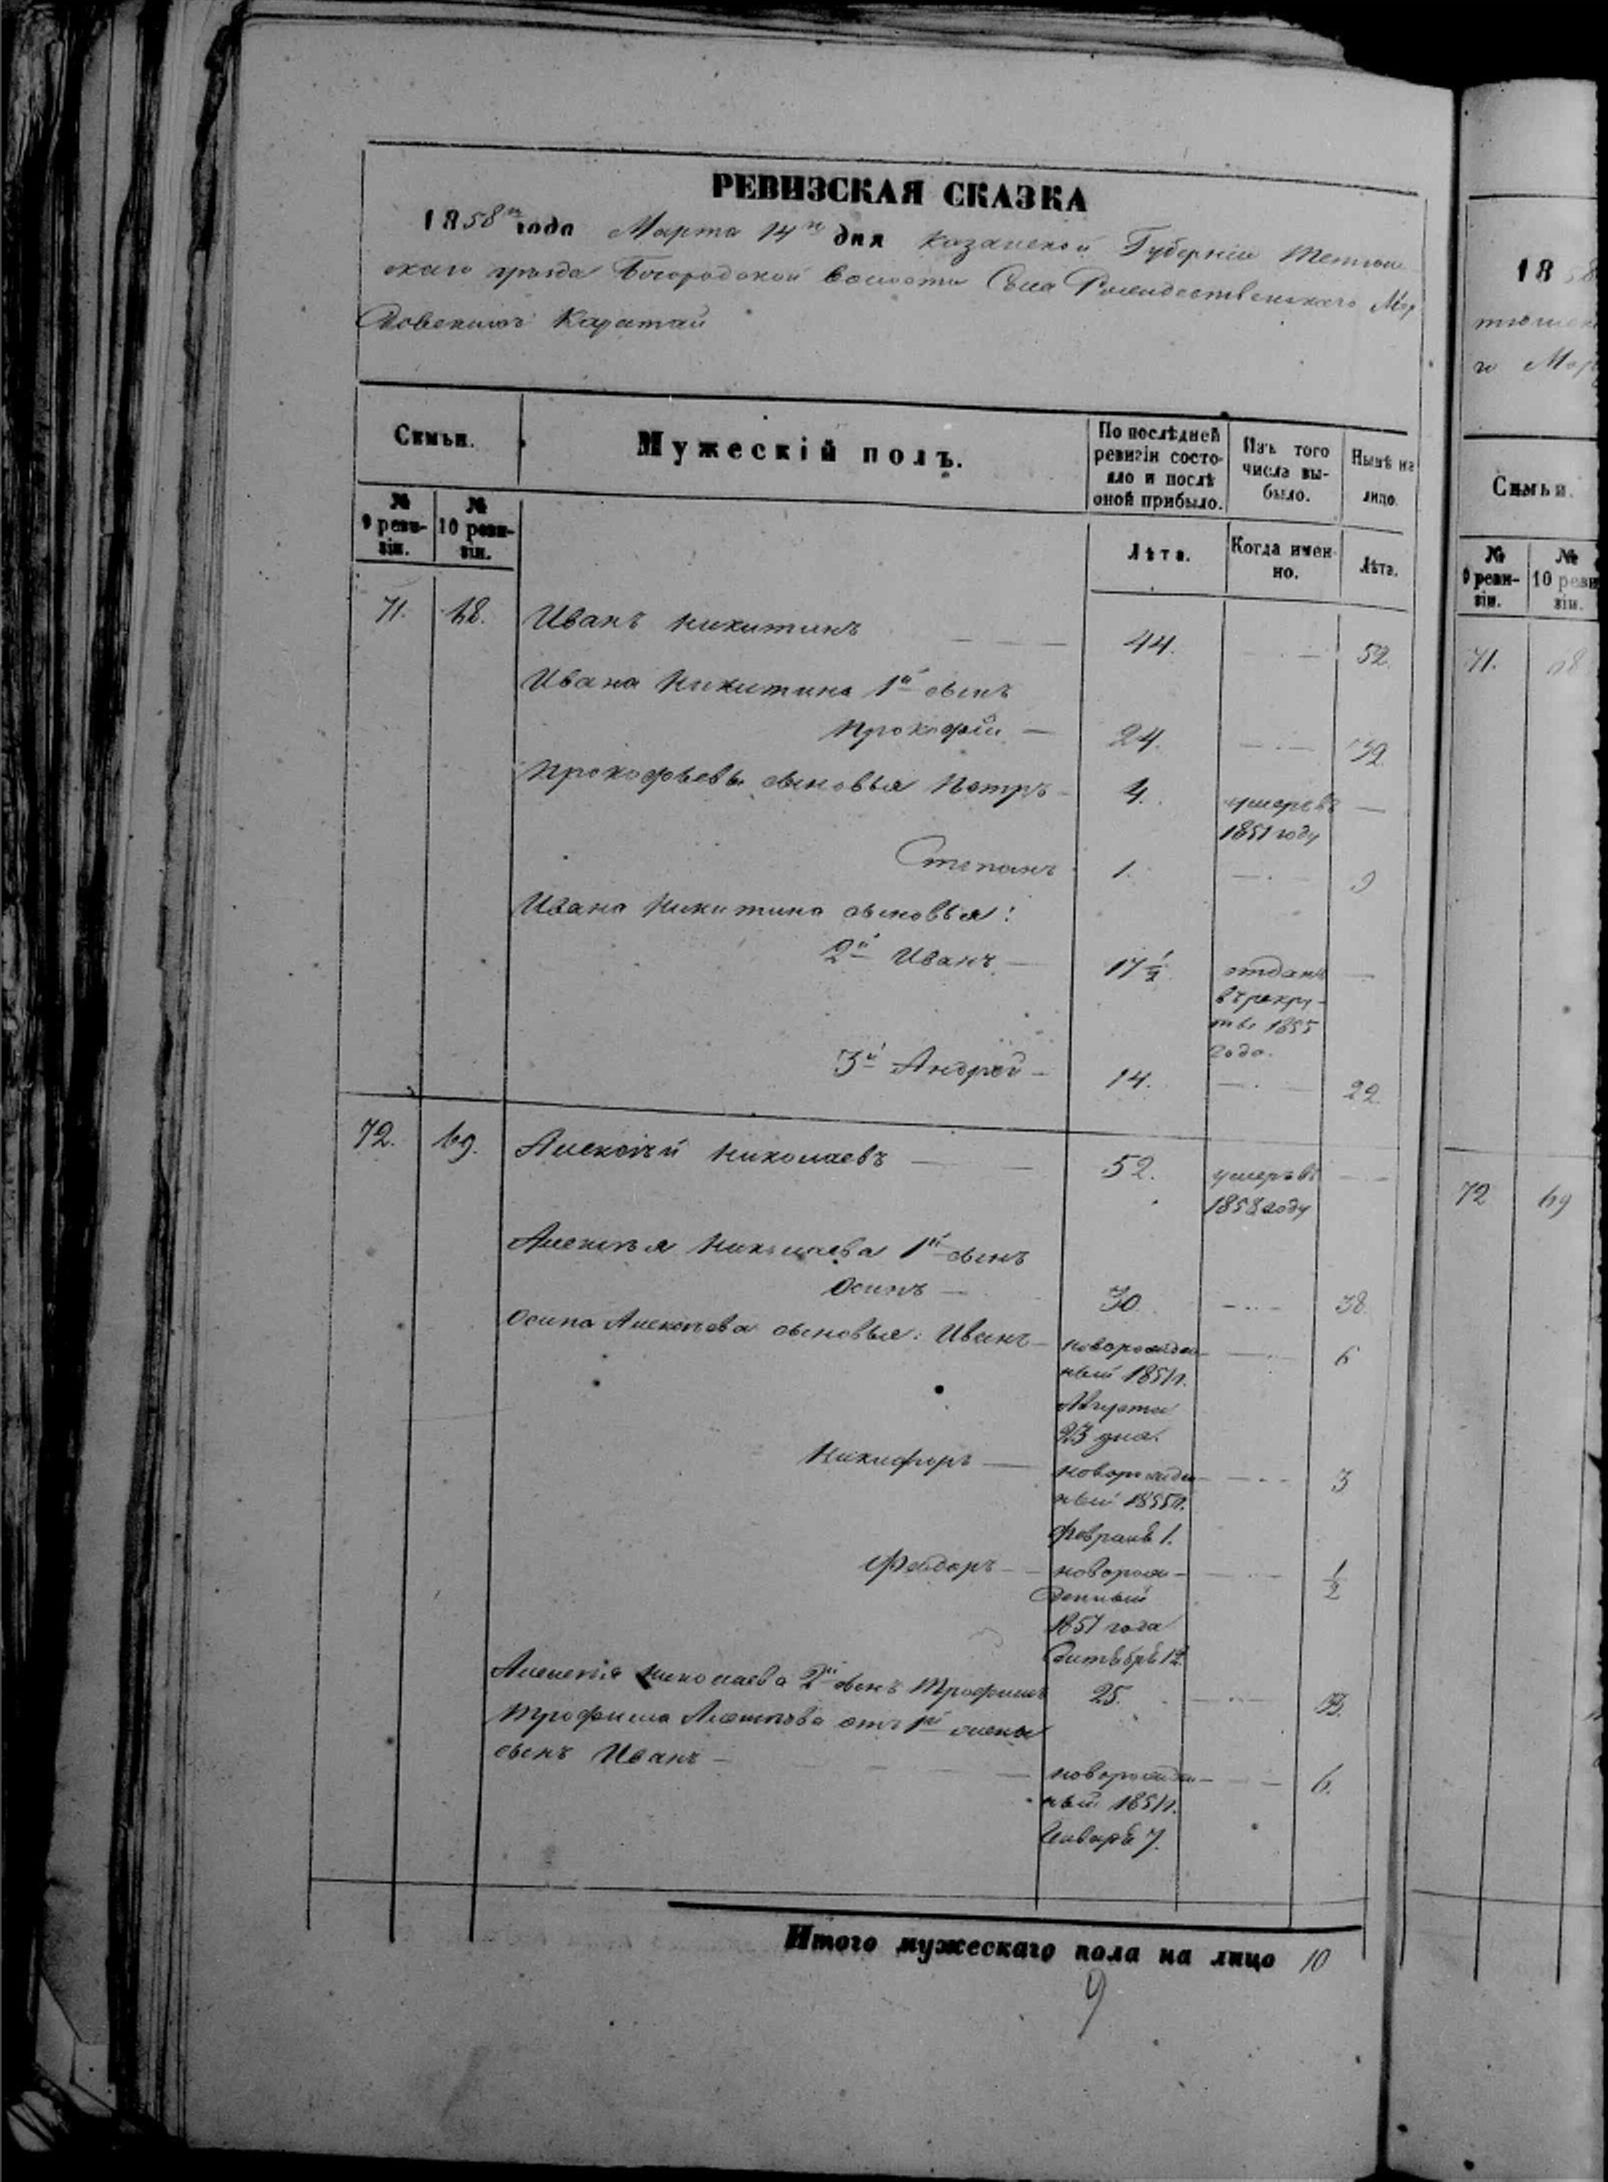 РЕВИЗСКАЯ СКАЗКА
1858го года Марта 14го дня Казанской Губерніи Тетюш
скаго уѣзда Богородской волости Села Рождественскаго Мор
довскихъ Каратай
Семьи.
Мужескій полъ.
По послѣдней ревизіи состояло и послѣ оной прибыло.
Изъ того числа выбыло.
Нынѣ на лицо.
№ 9 ревизіи.
№ 10 ревизіи.
Лѣта.
Когда именно.
Лѣта.
71. 68. Иванъ Никитинъ 44. 52.
Ивана Никитина 1й сынъ
Прокофій 24. 32
Прокофьевы сыновья Петръ 4. умеръ въ
1851 году
Степанъ 1. 9
Ивана Никитина сыновья:
2й Иванъ 17 1/2 отданъ
въ рекру-
ты 1855
года.
3й Андрей 14. 22.
72. 69. Алексѣй Николаевъ 52. умеръ въ
1858 году
Алексѣя Николаева 1й сынъ
Осипъ 30 38
Осипа Алексѣева сыновья: Иванъ новорожден-
ный 1851г. 6
Августа
23 дня.
Никифоръ новорожден-
ный 1855г. 3
Февраля 1.
Фёдоръ новорож-
денный 1/2
1857 года
Сентября 12
Алексѣя Николаева 2й сынъ Трофимъ 25. 33.
Трофима Алексѣева отъ 1й жены
сынъ Иванъ новорожден-
ный 1851г. 6.
Января 7.
Итого мужескаго пола на лицо 10
9
1858
тюшск
го Мор
Семьи.
№ 9 ревизіи.
№ 10 реви
зіи.
71. 68
72 69